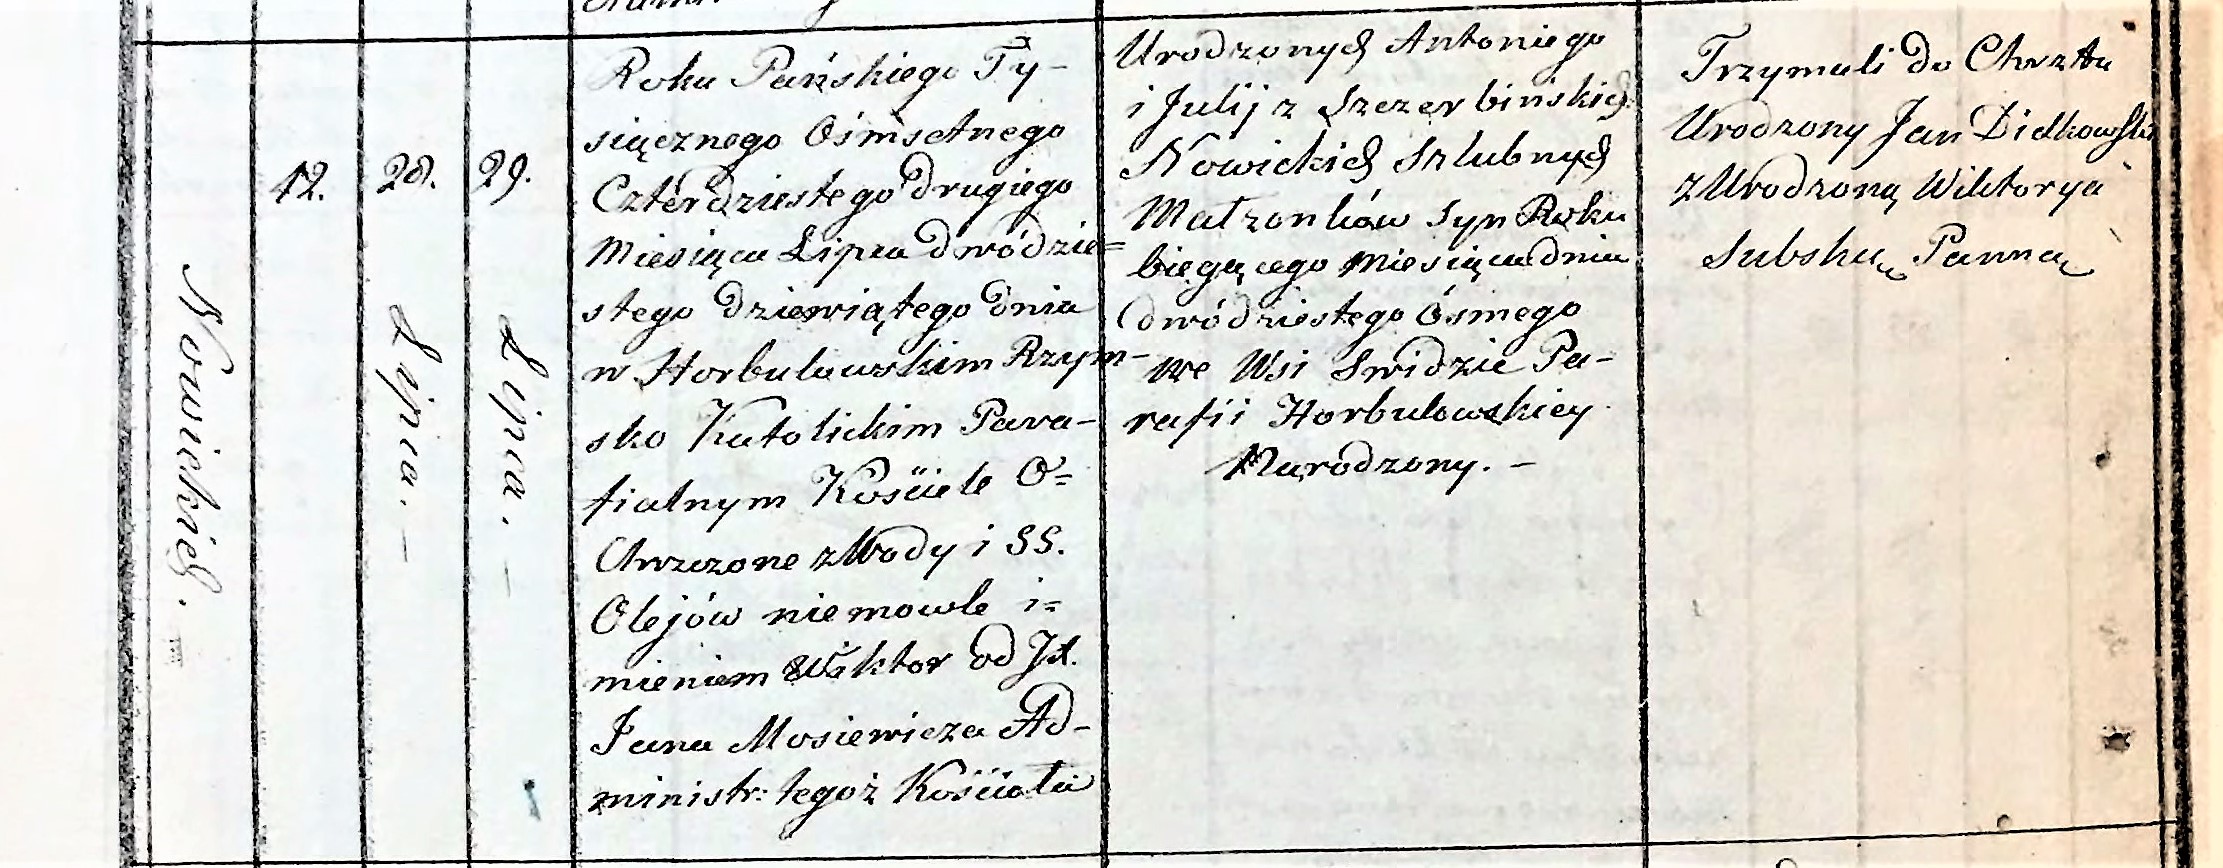 Nowickich.
12.
28.
Lipca. –
29.
Lipca. –
Roku Pańskiego Ty-
siącznego Ośmsetnego
Czterdziestego drugiego
Miesiąca Lipca dwódzie=
stego dziewiątego dnia
w Horbulowskim Rzym-
sko Katolickim Para-
fialnym Kościele O=
Chrzczone z Wody i SS.
Olejów niemowle i=
mieniem Wiktor od JX.
Jana Mosiewicza Ad-
ministr: tegoż Kościoła
Urodzonych Antoniego
i Julij z Szczerbińskich
Nowickich Szlubnych
Małzonków Syn Roku
biegącego Miesiąca dnia
dwódziestego Ósmego
we Wsi Swidzie Pa-
rafii Horbulowskiey
Narodzony. –
Trzymali do Chrztu
Urodzony Jan Didkowski
z Urodzoną Wiktorya
Panną